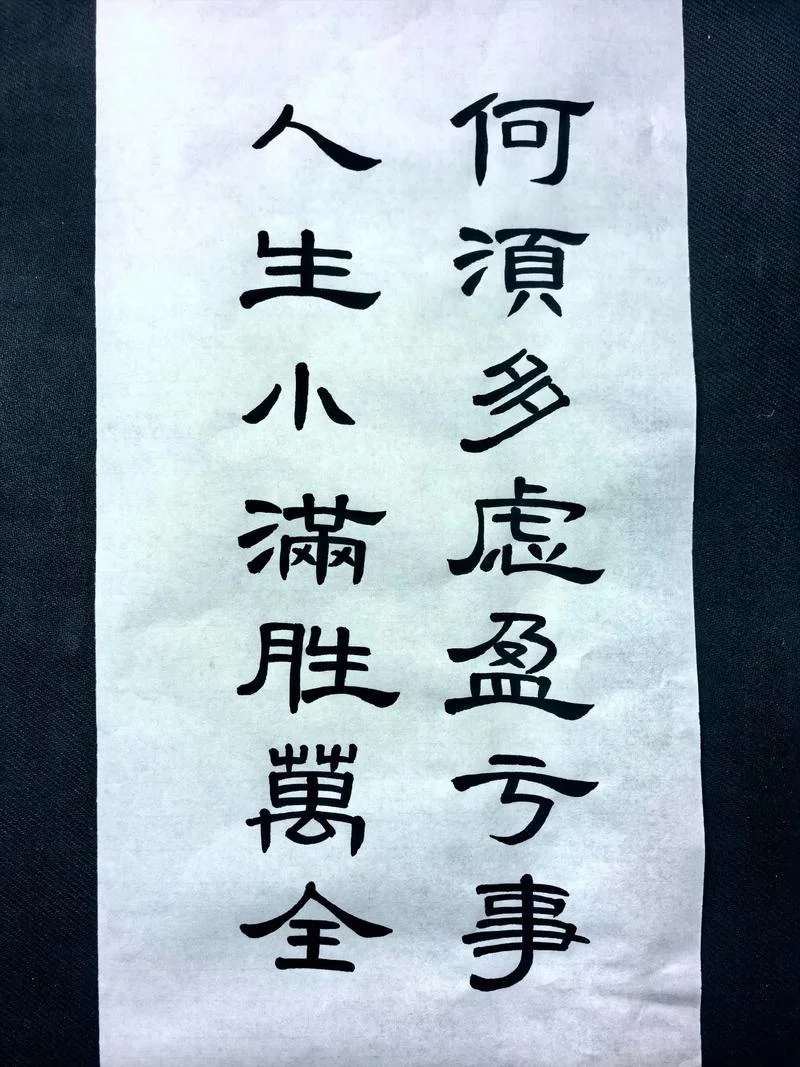 何湏多虑盈亏事
人生小滿胜萬全